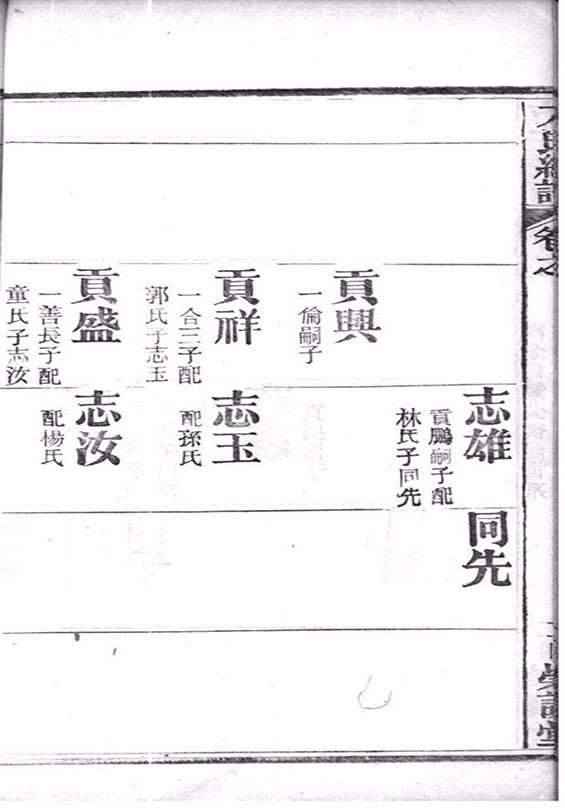 志雄
貢鵬嗣子配
林氏子同先
同先
貢興
一倫嗣子
貢祥
一合二子配
郭氏子志玉
志玉
配孫氏
貢盛
一善長子配
童氏子志汝
志汝
配楊氏